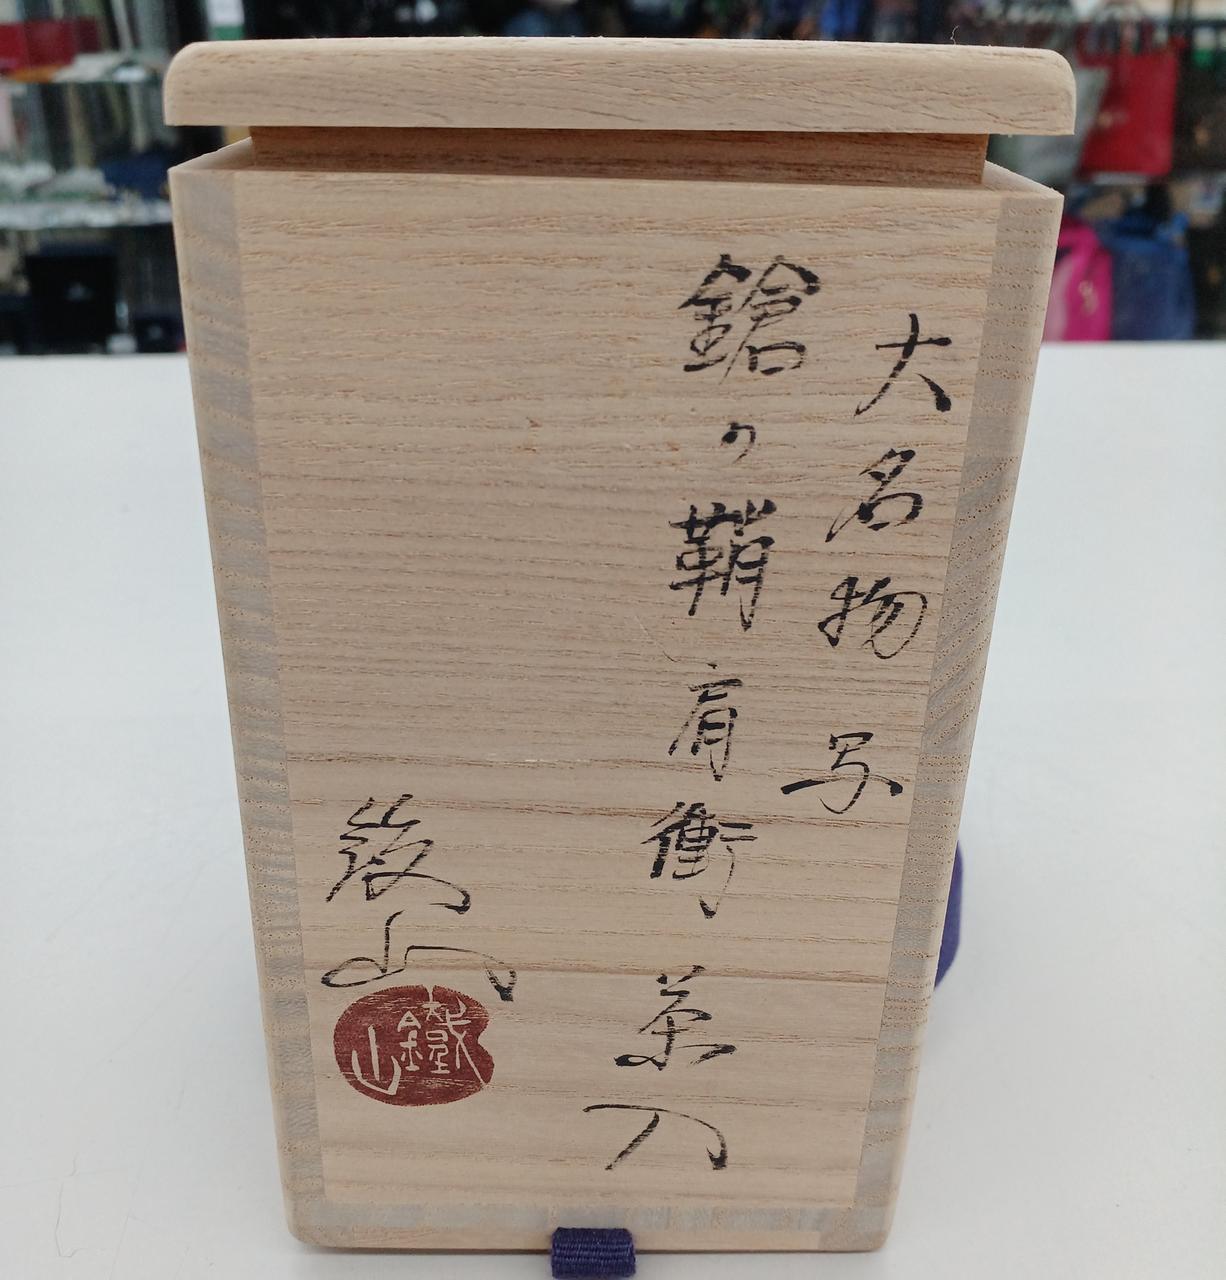 大名物写
鎗の鞘肩衝茶入
鐵山